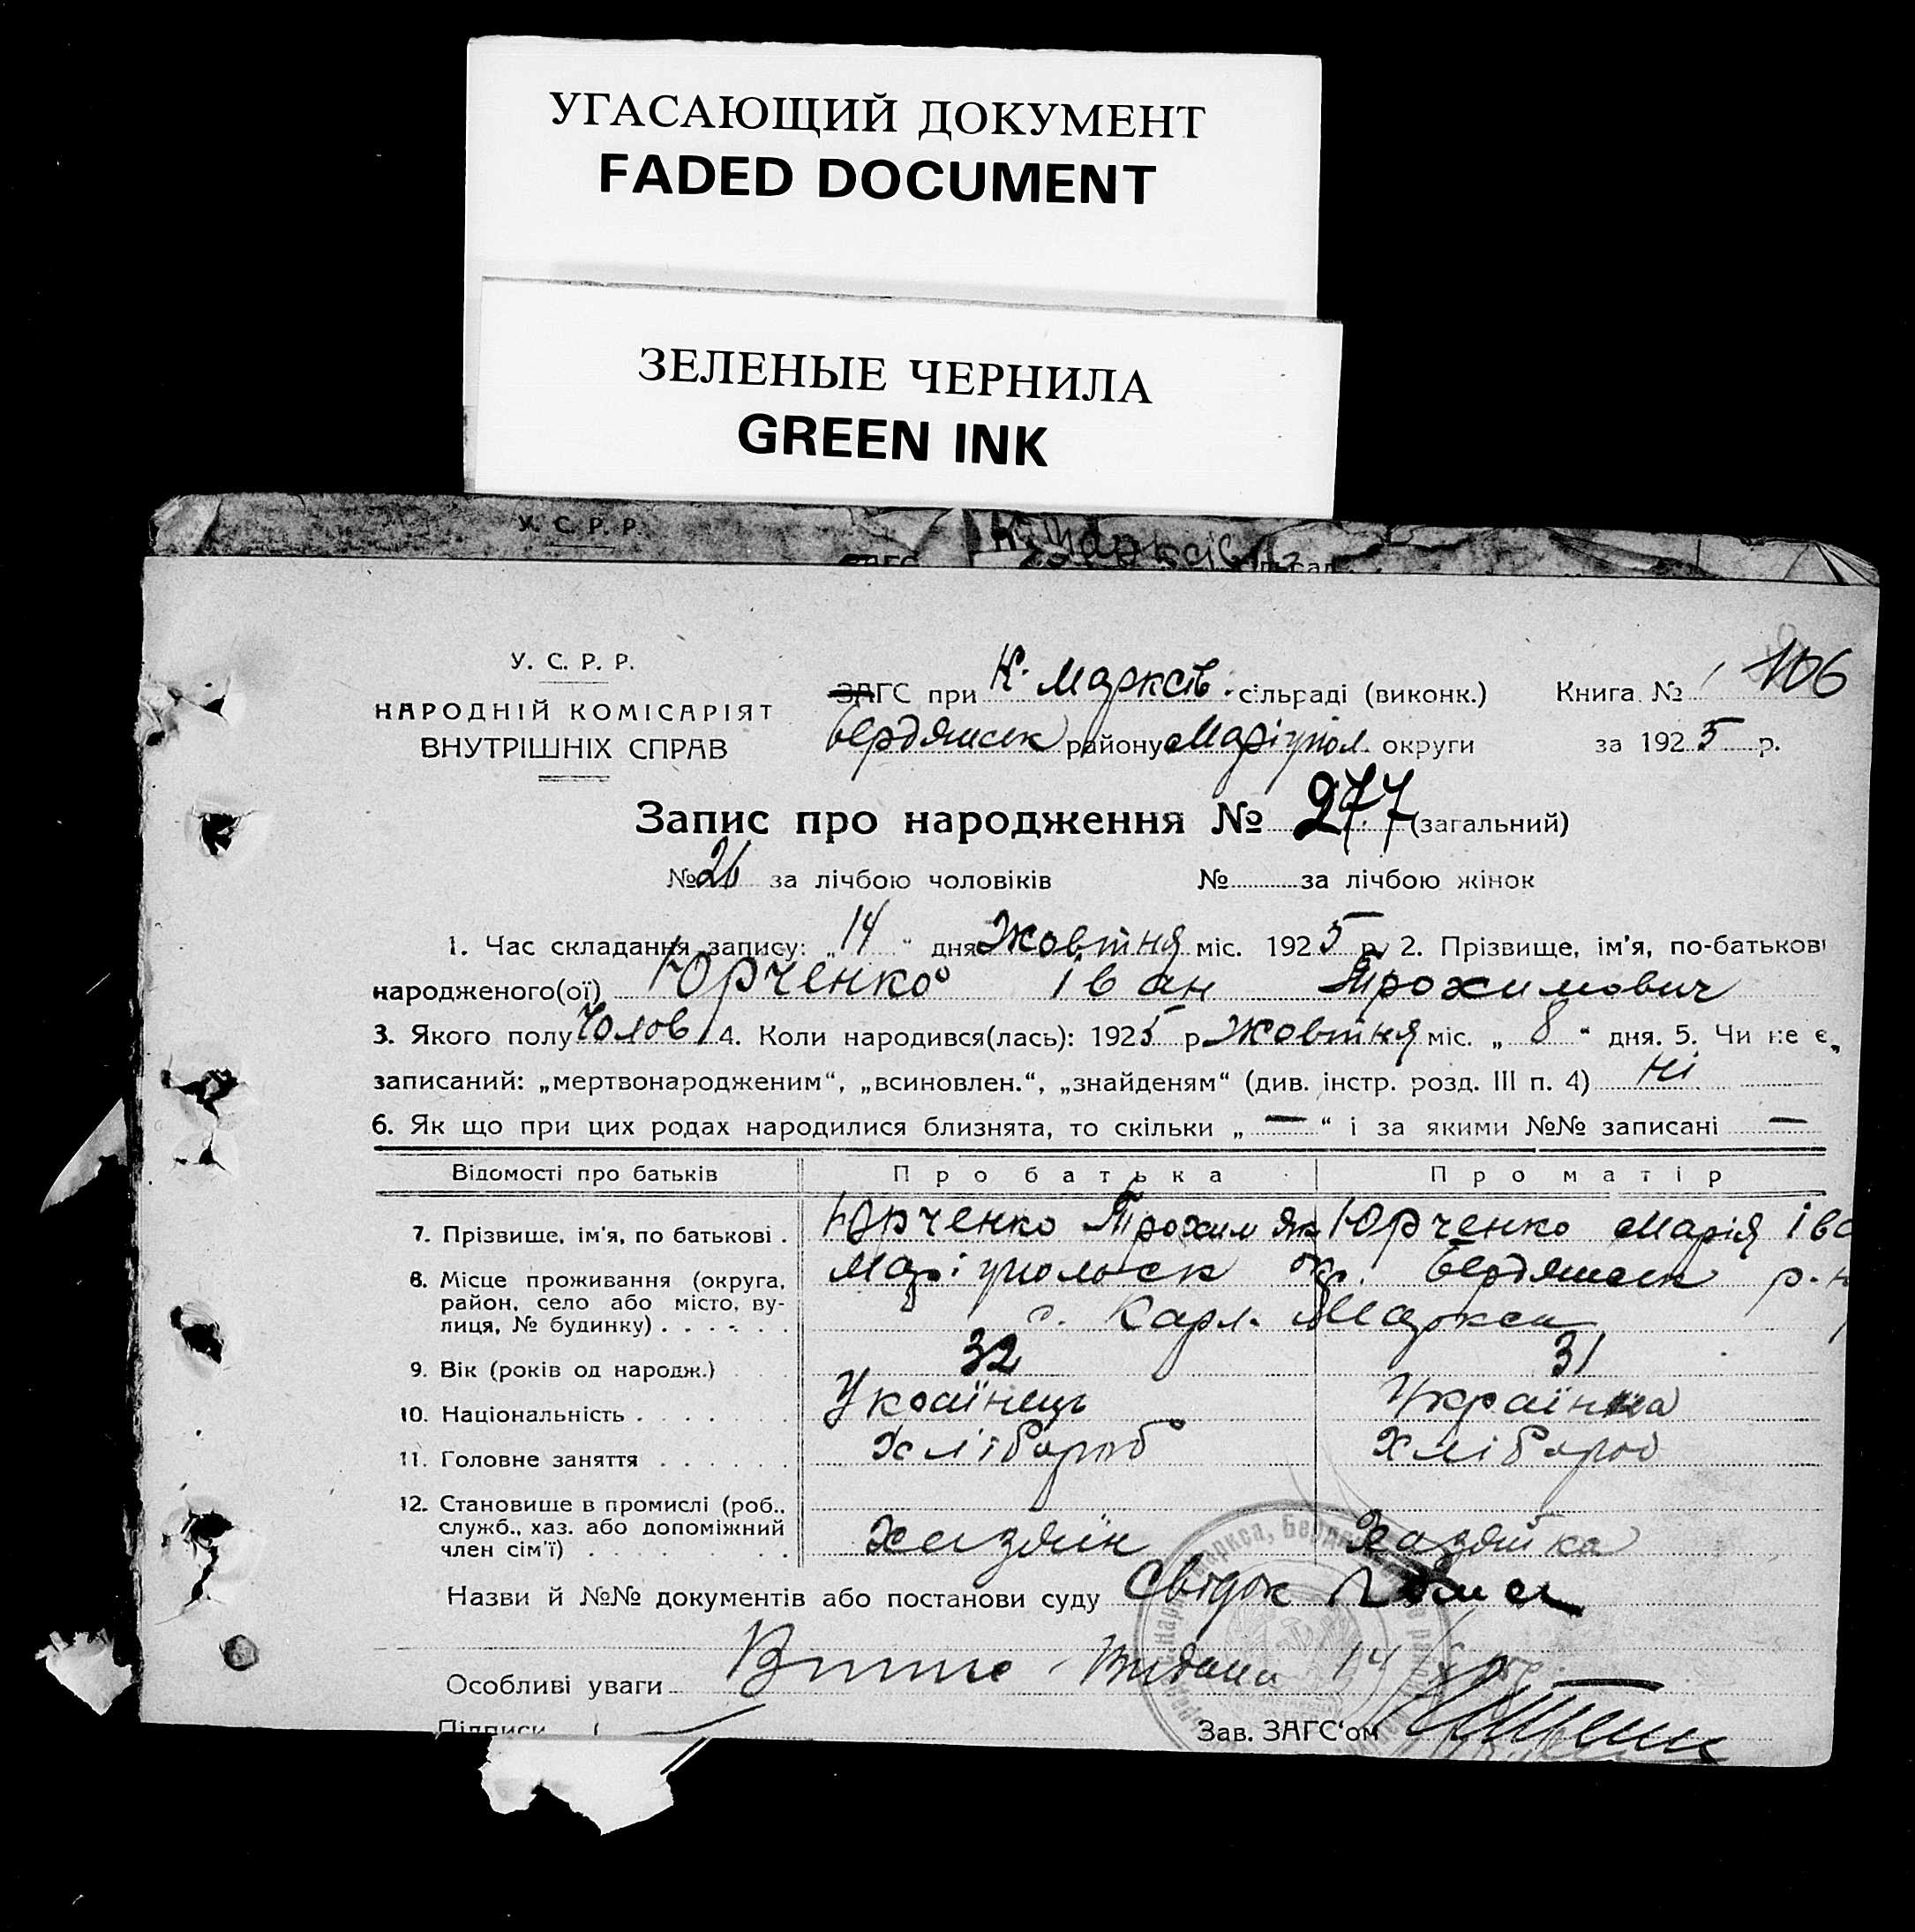 УГАСАЮЩИЙ ДОКУМЕНТ
FADED DOCUMENT
ЗЕЛЕНЫЕ ЧЕРНИЛА
GREEN INK
У. С. Р. Р.
У. С. Р. Р.
НАРОДНІЙ КОМІСАРІЯТ
ВНУТРІШНІХ СПРАВ
ЗАГС при К. Марксів. сільраді (виконк.) Книга № 106
Бердянськ району Маріупол. округи за 1925 р.
Запис про народження № 277 (загальний)
№ 26 за лічбою чоловіків № за лічбою жінок
1. Час складання запису: „14“ дня Жовтня міс. 1925 р. 2. Прізвище, ім'я, по-батькові
народженого(ої) Юрченко Іван Трохимович
3. Якого полу Чолов 4. Коли народився(лась): 1925 р. Жовтня міс. „8“ дня. 5. Чи не є
записаний: „мертвонародженим“, „всиновлен.“, „знайденям“ (див. інстр. розд. III п. 4) Ні
6. Як що при цих родах народилися близнята, то скільки „—“ і за якими №№ записані —
Відомості про батьків Про батька Про матір
7. Прізвище, ім'я, по батькові . Юрченко Трохим Як Юрченко Марія Іва
8. Місце проживання (округа, Маріупольськ окр. Бердянськ р-н
район, село або місто, ву-
лиця, № будинку) . . . . . . с. Карл. Маркса
9. Вік (років од народж.) 32 31
10. Національність . . . . . Українець Українка
11. Головне заняття . . . . . . Хлібороб Хлібороб
12. Становище в промислі (роб.,
служб., хаз. або допоміжний
член сім'ї) . . . . . . . . . Хазяїн Хазяйка
Назви й №№ документів або постанови суду Свідок
Особливі уваги Видана 14
Підписи Зав. ЗАГС'ом